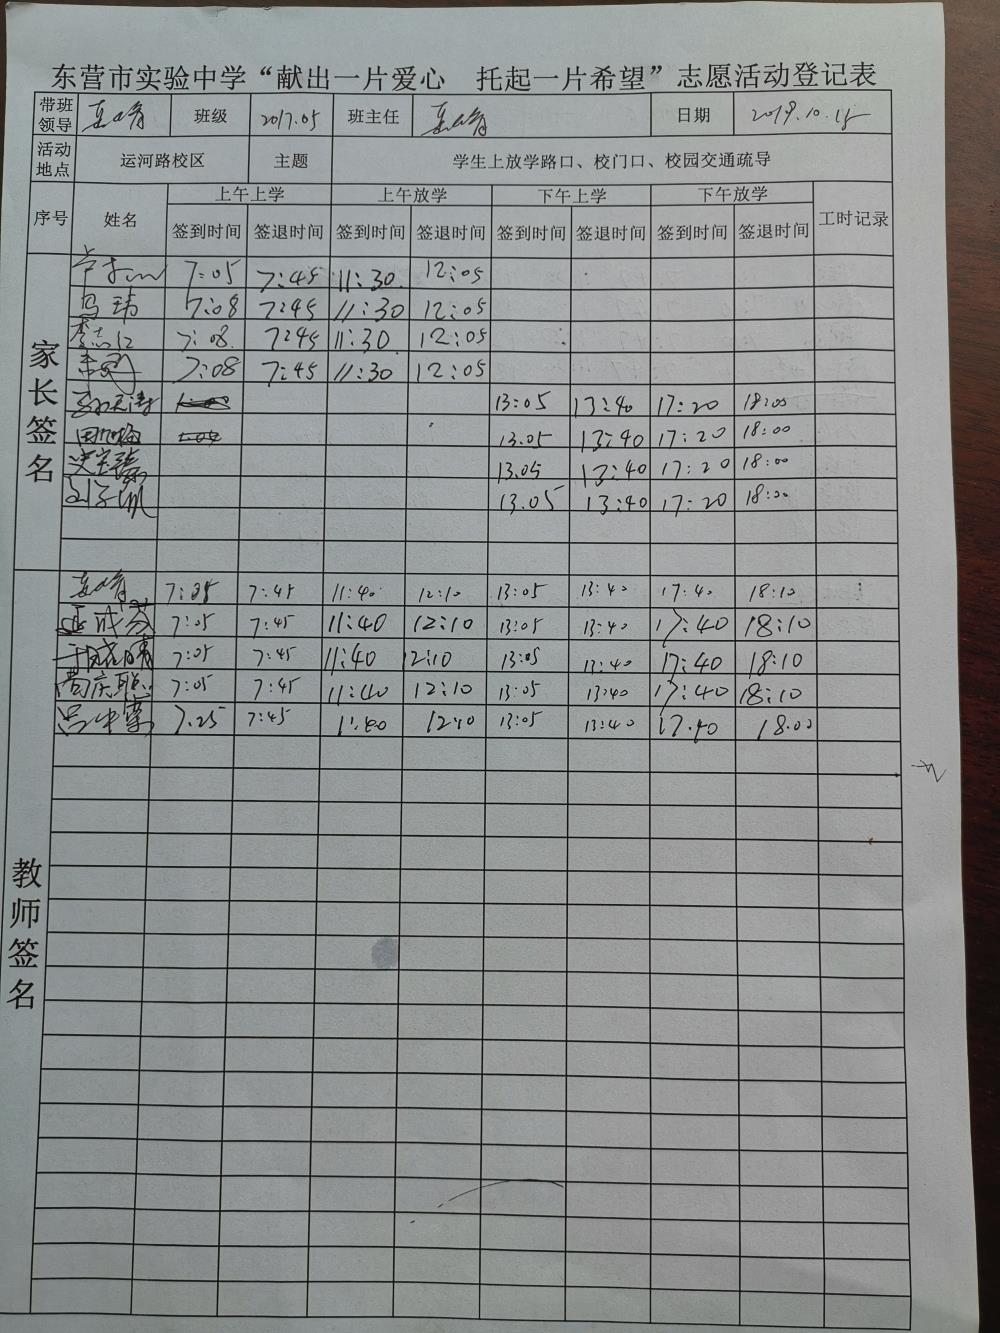 东营市实验中学“献出一片爱心 托起一片希望”志愿活动登记表
带班领导 班级 2017.05 班主任 日期 2019.10.15
活动地点 运河路校区 主题 学生上放学路口、校门口、校园交通疏导
序号 姓名 上午上学 上午放学 下午上学 下午放学 工时记录
签到时间 签退时间 签到时间 签退时间 签到时间 签退时间 签到时间 签退时间
家长签名
7:05 7:45 11:30 12:05
冯玮 7:08 7:45 11:30 12:05
李志江 7:08 7:45 11:30 12:05
7:08 7:45 11:30 12:05
13:05 13:40 17:20 18:00
13.05 13:40 17:20 18:00
13.05 13:40 17:20 18:00
13.05 13:40 17:20 18:00
教师签名
7:05 7:45 11:40 12:10 13:05 13:40 17:40 18:10
7:05 7:45 11:40 12:10 13:05 13:40 17:40 18:10
7:05 7:45 11:40 12:10 13:05 13:40 17:40 18:10
7:05 7:45 11:40 12:10 13:05 13:40 17:40 18:10
7.25 7:45 11:40 12:10 13:05 13:40 17.40 18.00